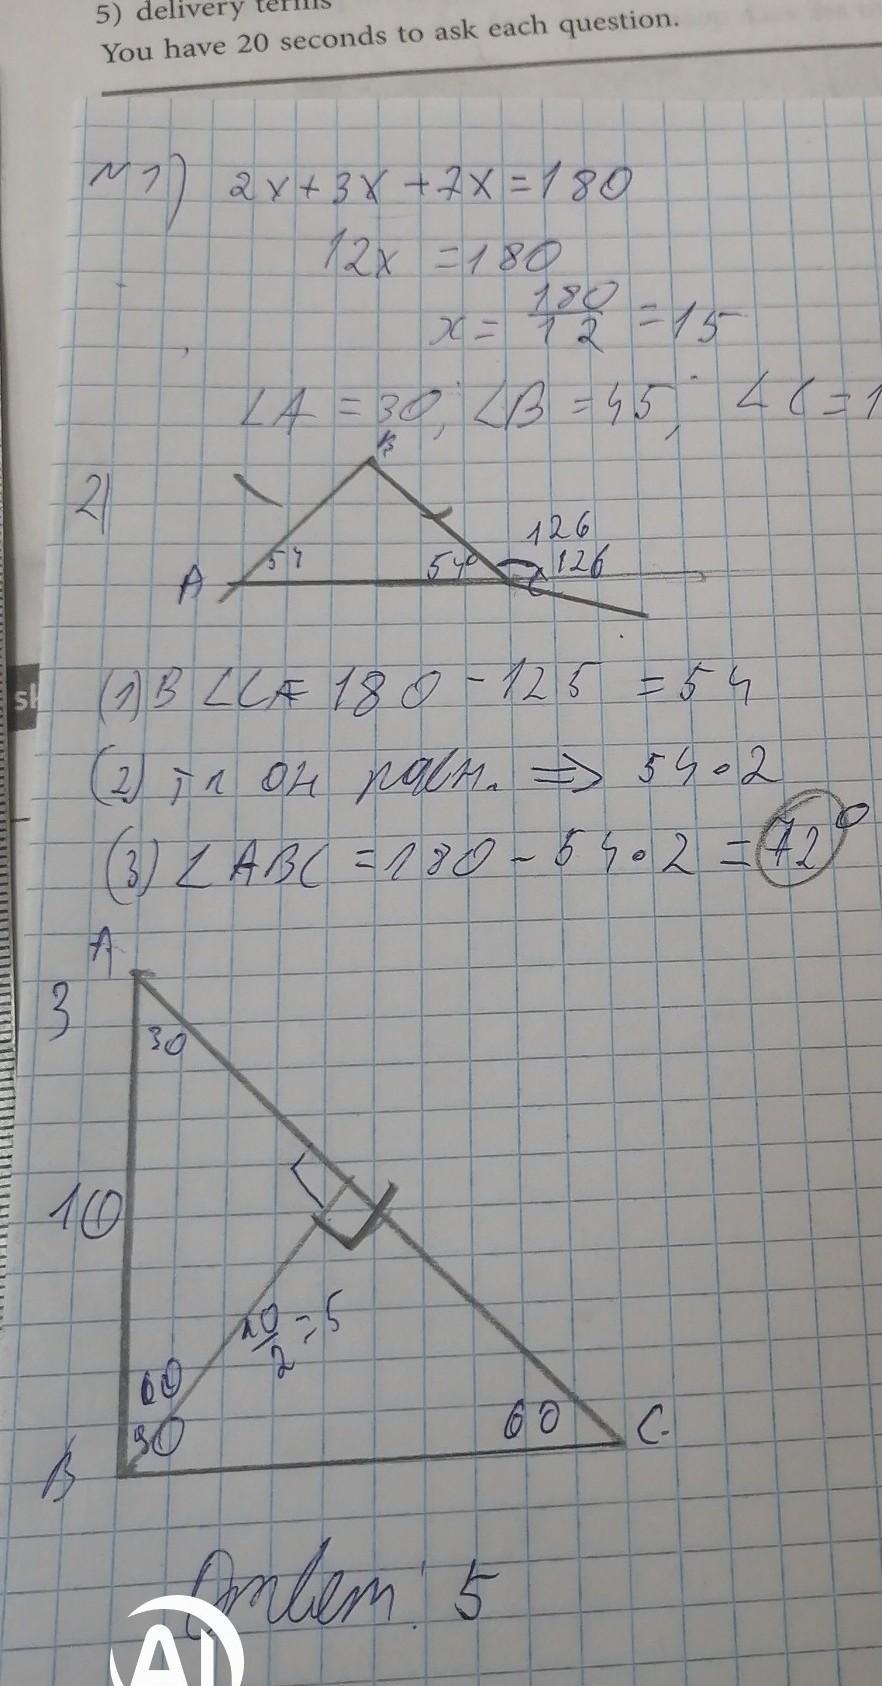 5) delivery terms
You have 20 seconds to ask each question.
№1) 2x+3x+7x=180
12x =180
x= 180/12 =15
∠A =30; ∠B =45; ∠C=1
2) B
126
54 54° 126
A C
(1) B ∠C= 180-125 =54
(2) тк он равн. => 54·2
(3) ∠ABC =180-54·2 =72°
A
3
30
10
10/2=5
60
30 60 C
B
Ответ: 5
AI